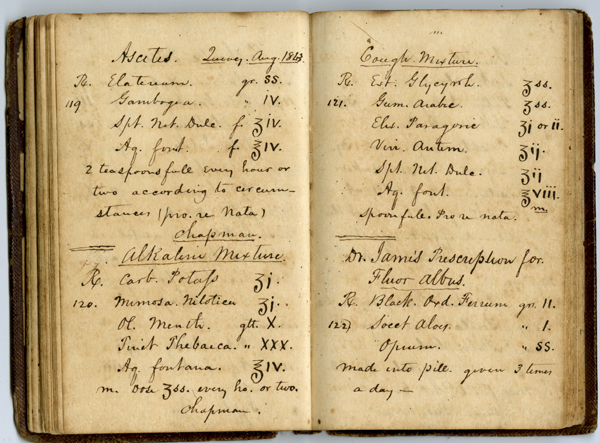 Ascites. Quincy. Aug. 1843.
R. Elatereum. gr. ss.
119 Gambogea. " iv.
Spt. Nit. Dulc. f. ʒiv.
Aq. font. f. ℥iv.
2 teaspoonsfull every hour or
two according to circum-
stances (pro. re Nata)
Chapman.
Alkaline Mixture.
R. Carb. Potass ʒi.
120. Mimosa. Nilotica ʒi.
Ol. Menth. gtt. X.
Tinct Thebaica. " XXX.
Aq. fontana. ℥iv.
m. Dose ℥ss. every ho. or two.
Chapman.
Cough Mixture.
R. Ext. Glycyrrh. ʒss.
121. Gum. Arabic. ʒss.
Elix. Paragoric ʒi or ii.
Vin. Antim. ʒij.
Spt. Nit. Dulc. ʒij
Aq. font. ʒviii.
m.
spoonfull. Pro re nata.
Dr. Jamis Prescription for.
Fluor Albus.
R. Black. Oxd. Ferrum gr. II.
122) Socct Aloes. " I.
Opium. " ss.
made into pill. given 3 times
a day —